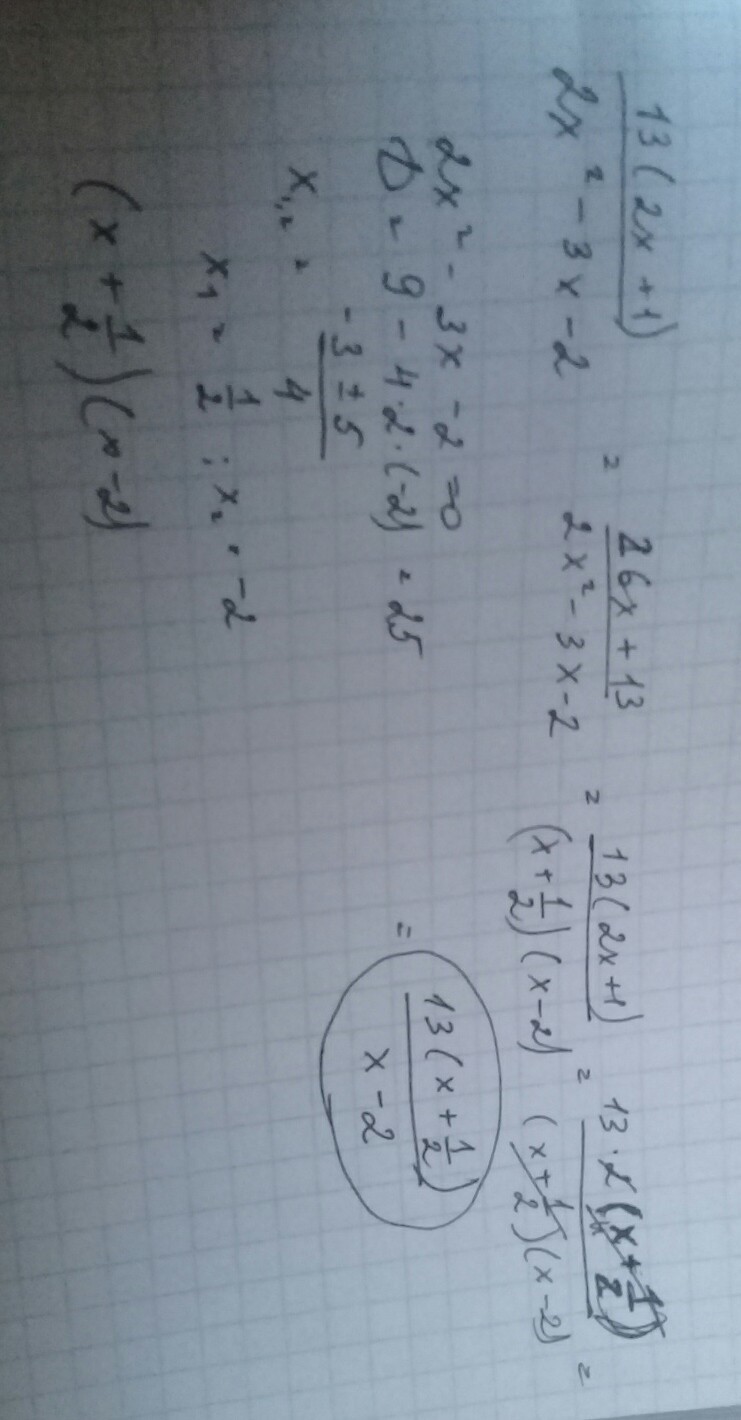 13(2x+1) / 2x² - 3x - 2 = 26x + 13 / 2x² - 3x - 2 = 13(2x+1) / (x + 1/2)(x - 2) = 13·2(x + 1/2) / (x + 1/2)(x - 2) =
= 13(x + 1/2) / x - 2
2x² - 3x - 2 = 0
D = 9 - 4·2·(-2) = 25
x₁,₂ = -3 ± 5 / 4
x₁ = 1/2 ; x₂ = -2
(x + 1/2)(x - 2)